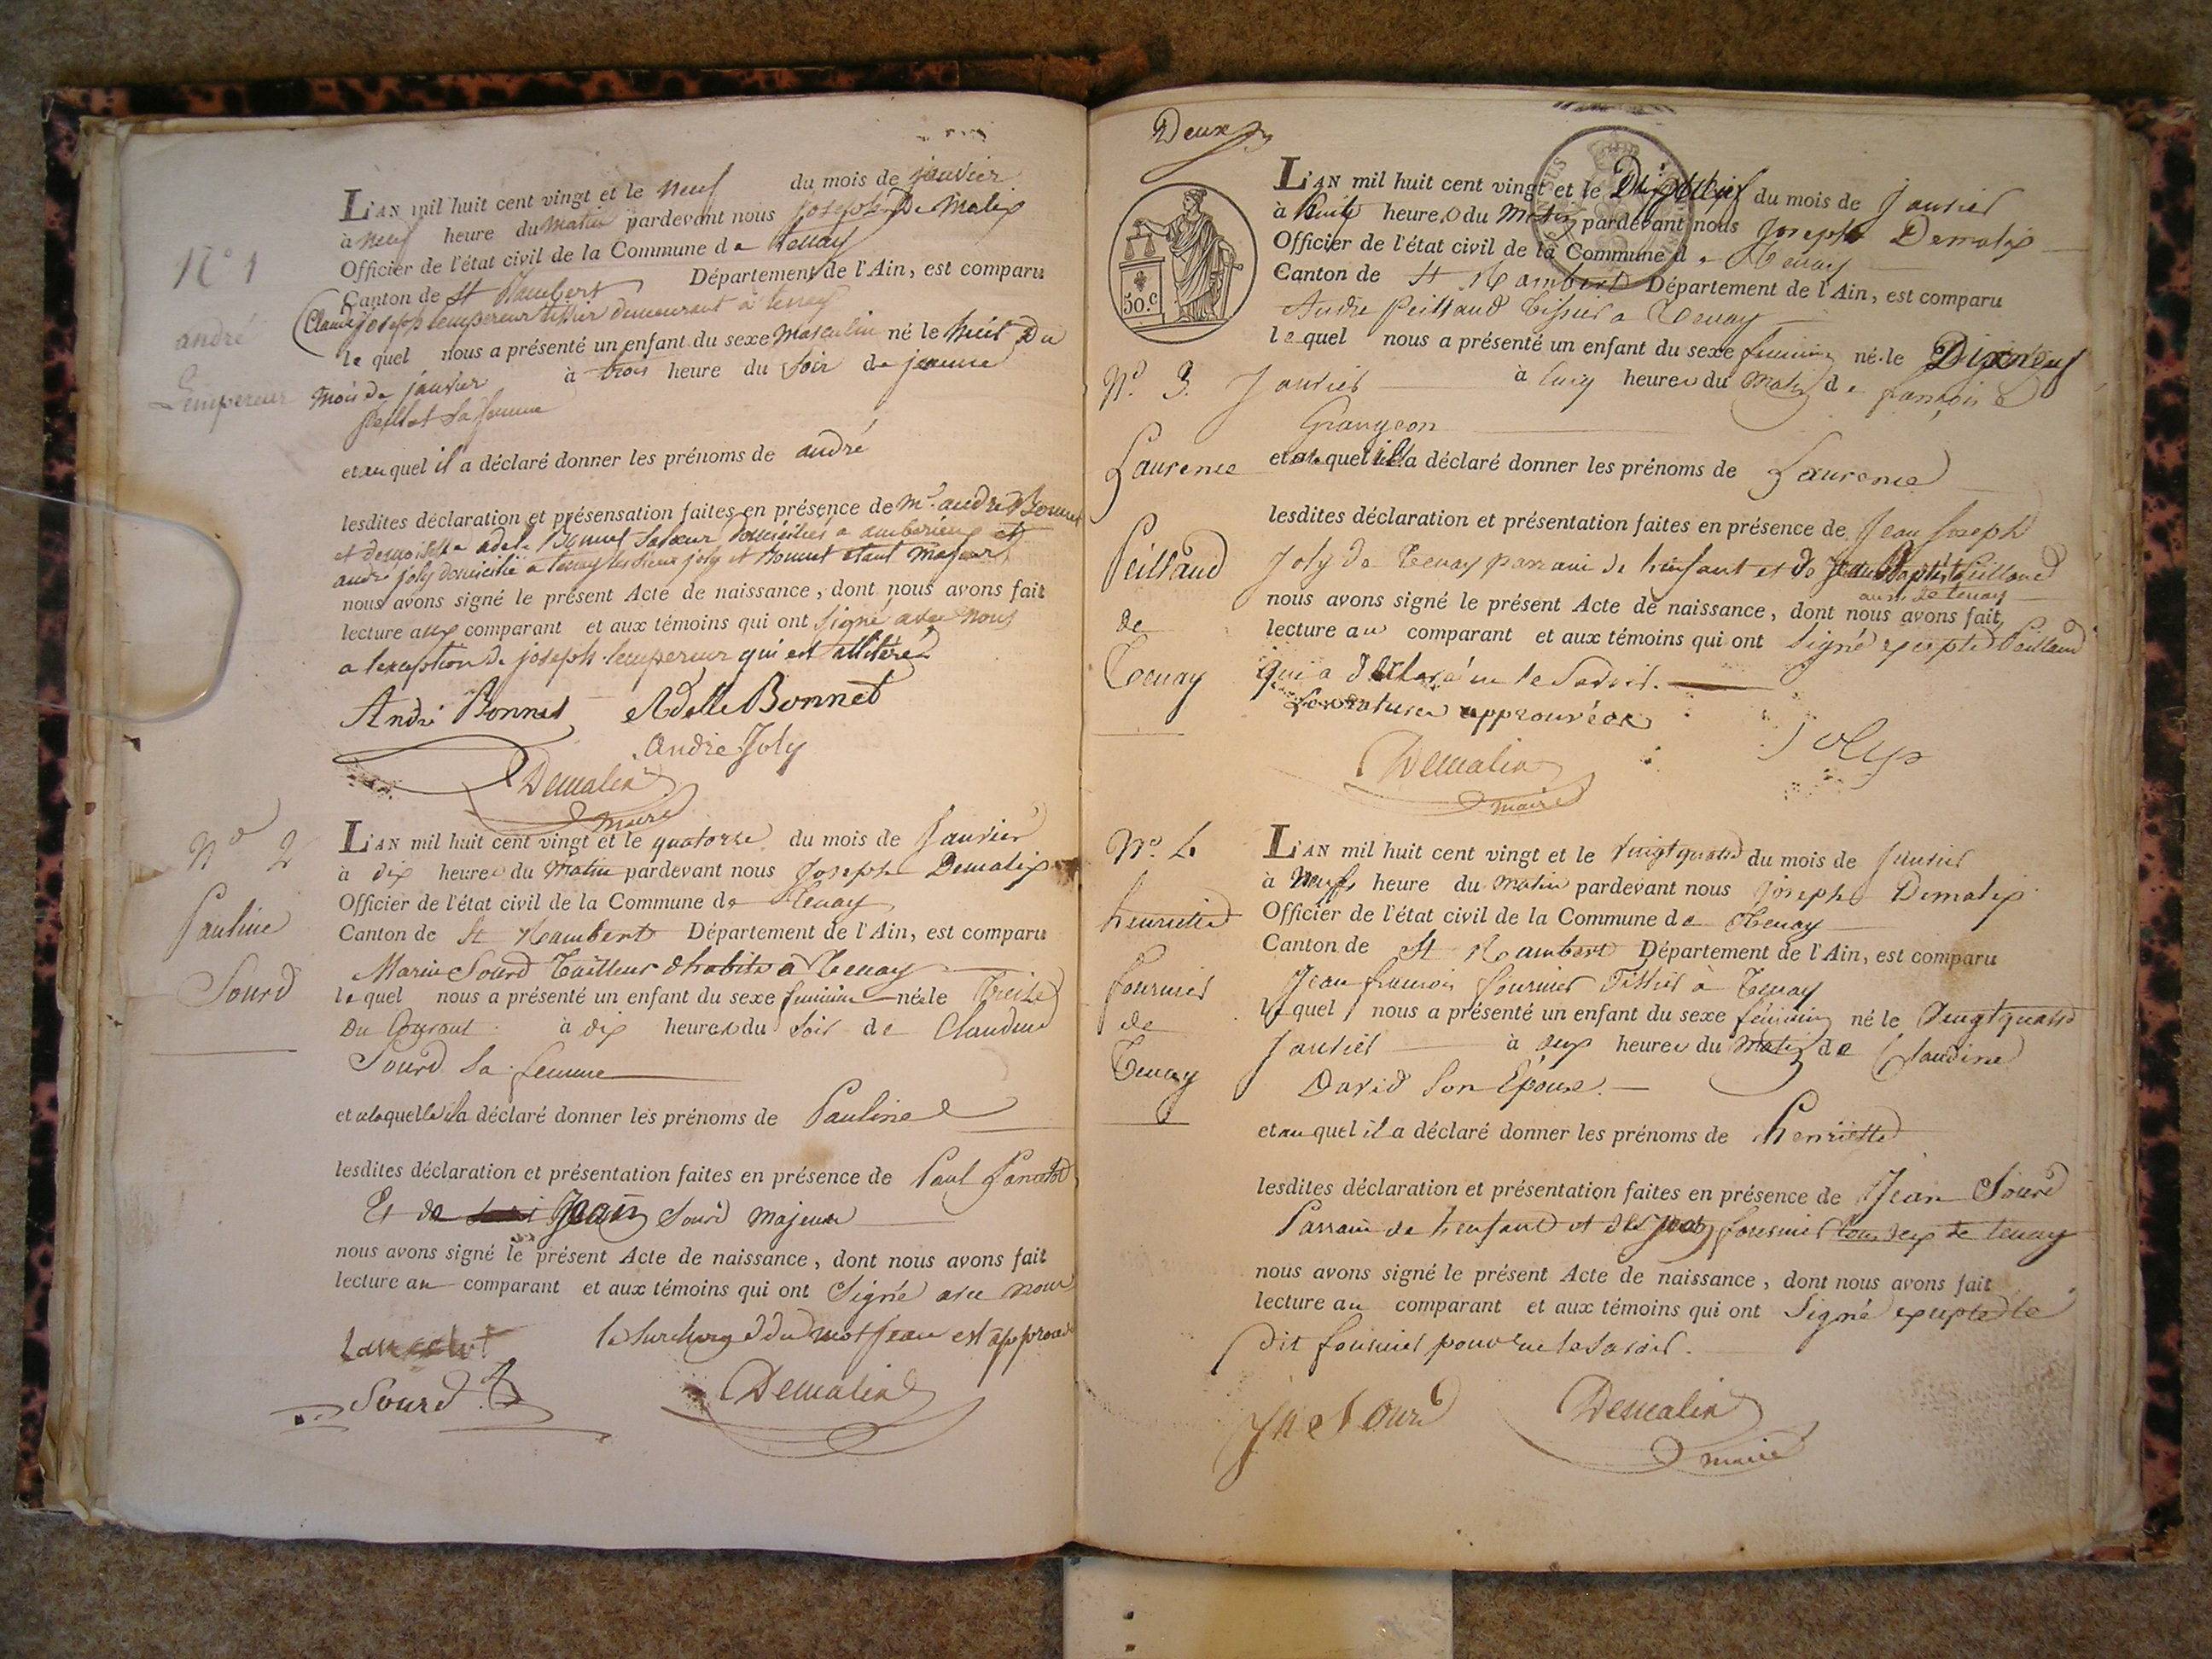 N° 1
andré
Lempereur
L'AN mil huit cent vingt et le neuf du mois de janvier
à neuf heure du matin pardevant nous joseph De Malix
Officier de l'état civil de la Commune de Tenay
Canton de St Rambert Département de l'Ain, est comparu
Claude joseph lempereur tissier demeurant à tenay
le quel nous a présenté un enfant du sexe masculin né le huit Du
mois de janvier à trois heure du soir de jeanne
sa femme
et au quel il a déclaré donner les prénoms de andré
lesdites déclaration et présensation faites en présence de mr. andré Bonnet
et demoiselle adele Bonnet domiciliés a amberieux et
andré joly domicilié a tenay les sieur joly et Bonnet étant majeur
nous avons signé le présent Acte de naissance, dont nous avons fait
lecture aux comparant et aux témoins qui ont signé avec nous
a l'exception de joseph lempereur qui est illitéré
André Bonnet Adelle Bonnet
andré Joly
Demalix
maire
N° 2
Pauline
Sourd
L'AN mil huit cent vingt et le quatorze du mois de Janvier
à dix heures du matin pardevant nous Joseph Demalix
Officier de l'état civil de la Commune de Tenay
Canton de St Rambert Département de l'Ain, est comparu
Marin Sourd Tailleur d'habits à Tenay
le quel nous a présenté un enfant du sexe feminin née le Treize
du Courant à dix heures du soir de Claudine
Sourd sa femme
et a laquelle il a déclaré donner les prénoms de Pauline
lesdites déclaration et présentation faites en présence de Paul Lancelot
Et de Jean Sourd majeurs
nous avons signé le présent Acte de naissance, dont nous avons fait
lecture au comparant et aux témoins qui ont Signé avec nous
Lancelot la surcharge du mot jean est approuvé
Sourd Demalix
Deux
50.c
N°. 3.
Laurence
Peilland
de
Tenay
L'AN mil huit cent vingt et le Dixneuf du mois de Janvier
à huit heures du Matin pardevant nous Joseph Demalix
Officier de l'état civil de la Commune de Tenay
Canton de St Rambert Département de l'Ain, est comparu
André Peilland Tissier a Tenay
le quel nous a présenté un enfant du sexe feminin né le Dixneuf
Janvier à cinq heures du Matin de françoise
Grangeon
et quel il a déclaré donner les prénoms de Laurence
lesdites déclaration et présentation faites en présence de Jean Joseph
Joly de Tenay parrain de l'enfant et de Jean Baptiste Peilland
aussi de tenay
nous avons signé le présent Acte de naissance, dont nous avons fait
lecture au comparant et aux témoins qui ont Signé excepté Peilland
qui a déclaré ne le Savoir.
approuvées
Joly
Demalix
maire
N°. 4.
henriette
fournier
de
Tenay
L'AN mil huit cent vingt et le vingt quatre du mois de Janvier
à Neuf heure du Matin pardevant nous joseph Demalix
Officier de l'état civil de la Commune de Tenay
Canton de St Rambert Département de l'Ain, est comparu
Jean françois fournier Tissier à Tenay
le quel nous a présenté un enfant du sexe feminin né le Vingt quatre
Janvier à deux heures du Matin de Claudine
David Son Epouse.
et au quel il a déclaré donner les prénoms de henriette
lesdites déclaration et présentation faites en présence de Jean Sourd
Parrain de l'enfant et de fournier tous deux de tenay
nous avons signé le présent Acte de naissance, dont nous avons fait
lecture au comparant et aux témoins qui ont Signé excepté le
dit fournier pour ne le savoir.
Jn Sourd Demalix
maire